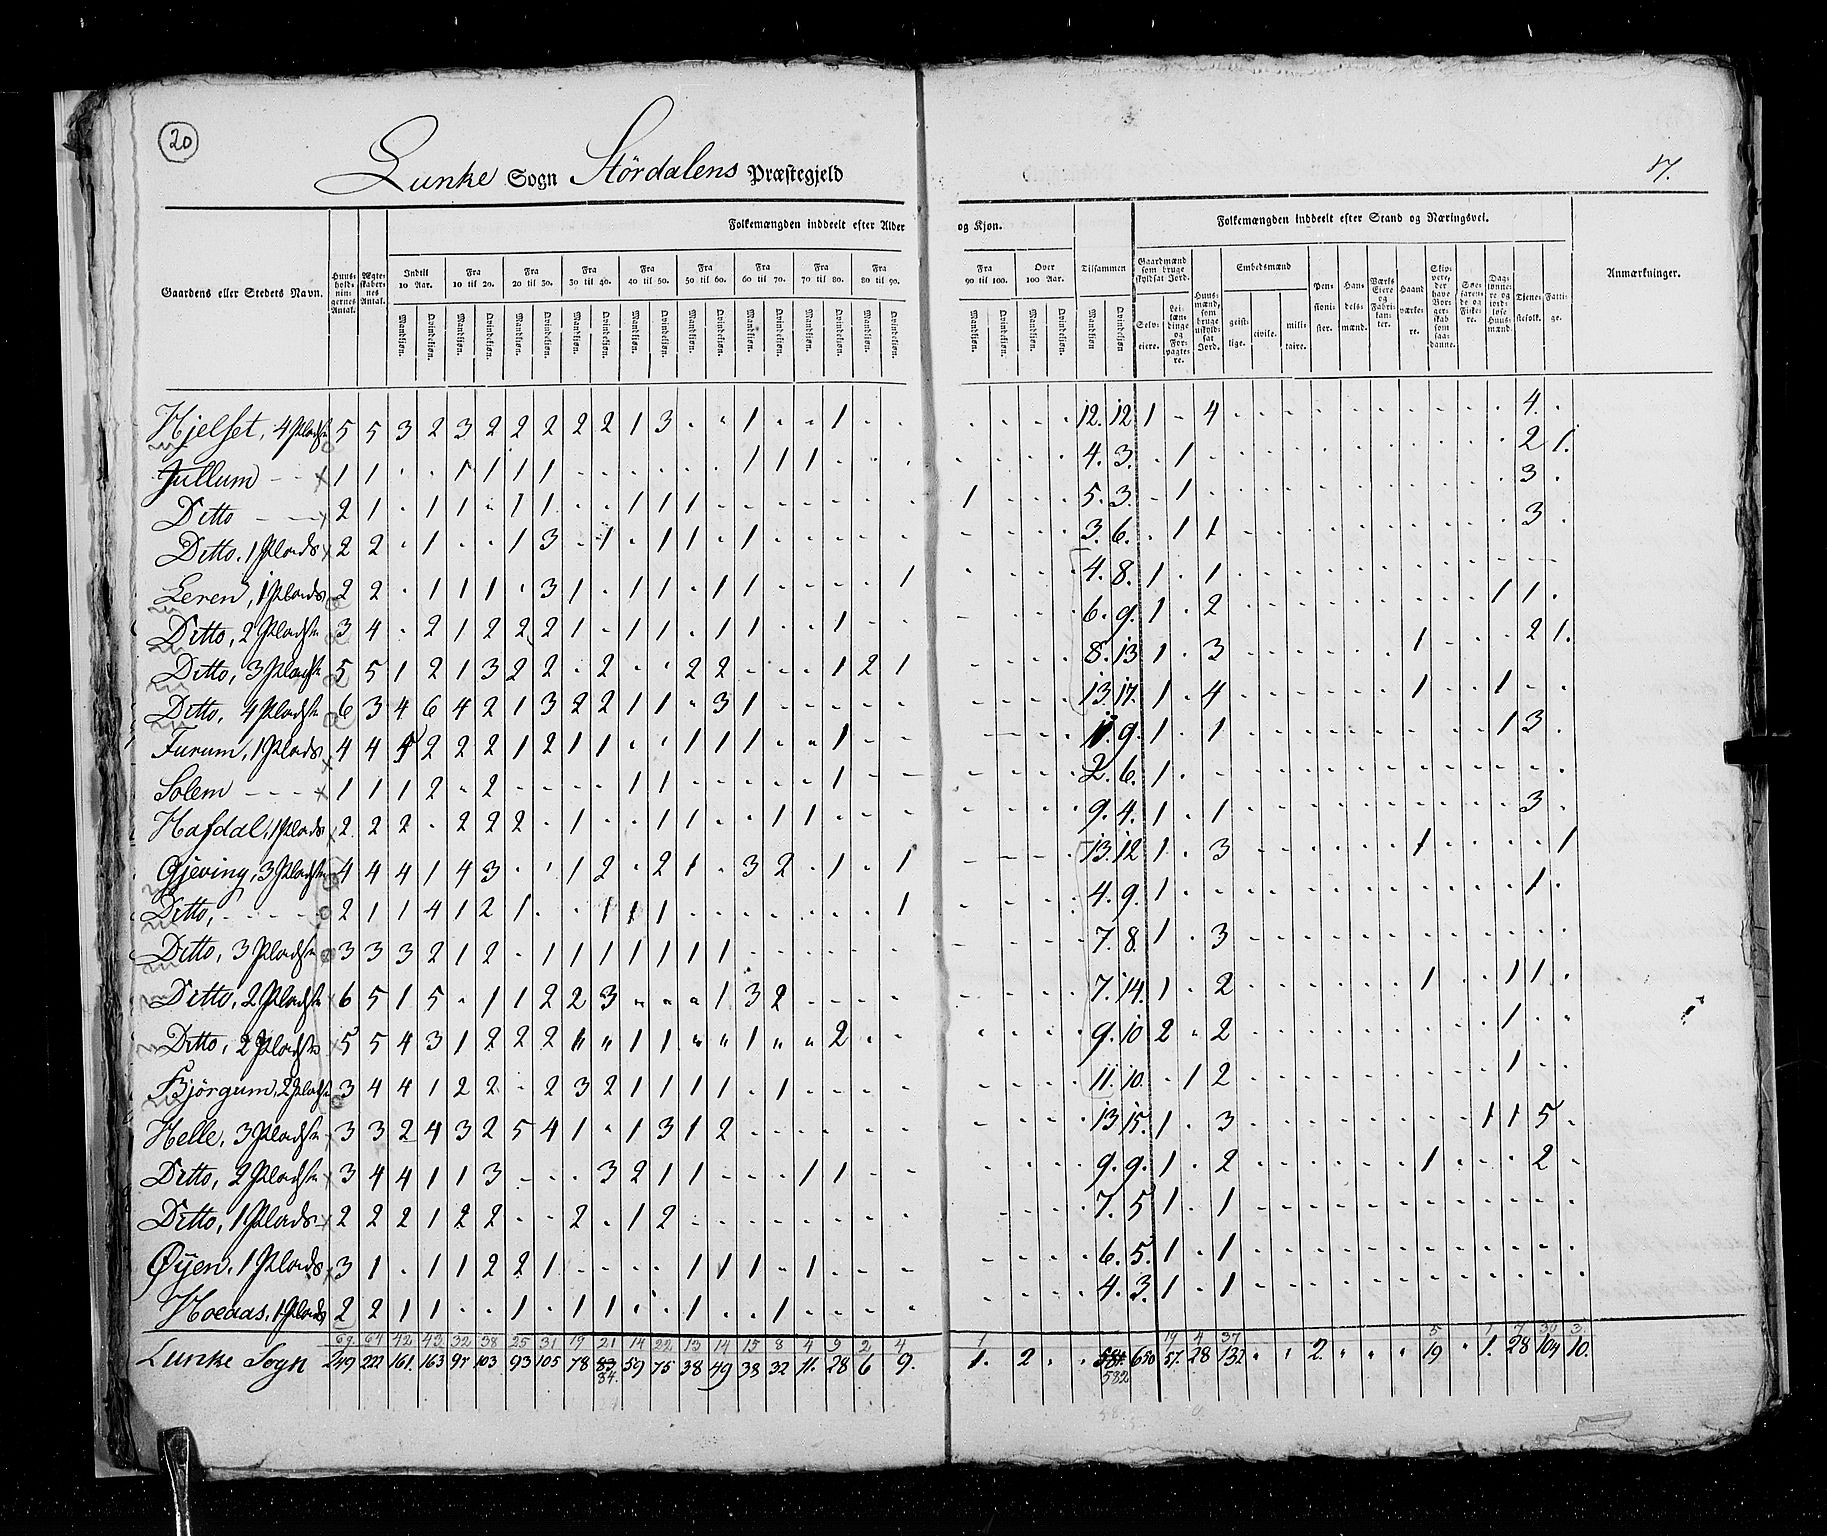 20
Lunke Sogn Stördalens Præstegjeld
17.
Folkemængden inddeelt efter Alder og Kjøn.
Folkemængden inddeelt efter Stand og Næringsvei.
Gaardens eller Stedets Navn.
Huusholdningernes Antal.
Ægteskabernes Antal.
Indtil 10 Aar.
Fra 10 til 20.
Fra 20 til 30.
Fra 30 til 40.
Fra 40 til 50.
Fra 50 til 60.
Fra 60 til 70.
Fra 70 til 80.
Fra 80 til 90.
Fra 90 til 100.
Over 100 Aar.
Tilsammen
Gaardmænd som bruge skyldsat Jord.
Huusmænd, som bruge uskyldsat Jord.
Embedsmænd
Pensionister.
Handelsmænd.
Værks Eiere og Fabrikanter.
Haandværkere.
Skippere, der have Borgerskab som saadanne.
Søefarende og Fiskere.
Daglønnere og jordløse Huusmænd.
Tjenestefolk.
Fattige.
Anmærkninger.
Mandkjøn. Qvindekjøn. Mandkjøn. Qvindekjøn. Mandkjøn. Qvindekjøn. Mandkjøn. Qvindekjøn. Mandkjøn. Qvindekjøn. Mandkjøn. Qvindekjøn. Mandkjøn. Qvindekjøn. Mandkjøn. Qvindekjøn. Mandkjøn. Qvindekjøn. Mandkjøn. Qvindekjøn. Mandkjøn. Qvindekjøn. Mandkjøn Qvindekjøn
Selveiere.
Leilændinge og Forpagtere.
geistlige. civile. militaire.
Hjelset, 4 Pladse 5 5 3 2 3 2 2 2 2 2 1 3 - - 1 - - 1 - - - - - - 12. 12 1 - 4 - - - - - - - - - - 4. -
Jullum 1 1 - - 1 1 1 1 - - - - - - 1 1 1 - - - - - - - 4. 3. - 1 - - - - - - - - - - - 2 1.
Ditto 2 1 - 1 1 - 1 1 - - 1 1 1 - - - - - - - 1 - - - 5. 3. - 1 - - - - - - - - - - - 3 -
Ditto. 1 Plads 2 2 - 1 - - 1 3 - 1 - 1 1 - 1 - - - - - - - - - 3. 6. - 1 1 - - - - - - - - - - 3 -
Leren, 1 Plads 2 2 - 1 1 1 - 3 1 - 1 1 - 1 1 - - - - 1 - - - - 4. 8. 1 - 1
Ditto, 2 Pladse 3 4 - 2 1 2 2 2 1 - 1 1 - 1 1 - - 1 - - - - - - 6. 9. 1 - 2 - - - - - - - - - 1 1 -
Ditto, 3 Pladse 5 5 1 2 1 3 2 2 - 2 - - 2 2 - - - 1 2 1 - - - - 8. 13 1 - 3 - - - - - - 1 - - - 2 1.
Ditto, 4 Pladse 6 3 4 6 4 2 1 3 2 2 1 1 - 3 1 - - - - - - - - - 13. 17. 1 - 4 - - - - - - 1 - - 1 - -
Furum, 1 Plads 4 4 5 2 2 2 1 2 1 1 - - 1 1 1 - - 1 - - - - - - 11. 9. 1 - 1 - - - - - - - - - 1 3 -
Solem 1 1 1 2 - 2 - - - - 1 1 - - - - - 1 - - - - - - 2. 6. 1
Hafdal, 1 Plads 2 2 2 - 2 2 2 - 1 - - 1 1 - - 1 1 - - - - - - - 9. 4. 1 - 1 - - - - - - - - - - 3 -
Gjeving, 3 Pladse 4 4 4 1 4 3 - - 1 2 - 2 1 - 3 2 - 1 - 1 - - - - 13. 12 1 - 3 - - - - - - 1 - - - - 1
Ditto, 2 1 1 4 1 2 1 - - 1 1 1 1 - - - - - - - 1 - - - - 4. 9. 1 - - - - - - - - - - - - 1 -
Ditto, 3 Pladse 3 3 3 2 1 2 - 1 1 1 1 1 1 1 - - - - - - - - - - 7. 8. 1 - 3
Ditto, 2 Pladse 6 5 1 5 - 1 1 2 2 3 - - - 1 3 2 - - - - - - - - 7. 14. 1 - 2 - - - - - - 1 - - 1 1 -
Ditto, 2 Pladse 5 5 4 3 1 2 2 2 " " 1 1 " " 1 " " 2 - - - - - - 9. 10 2 - 2 - - - - - - - - - 1 - -
Bjørgum, 2 Pladse 3 4 4 1 2 2 - 2 3 2 1 1 1 1 - 1 - - - - - - - - 11. 10. - 1 2 - - - - - - - - - 1 - -
Helle, 3 Pladse 3 3 2 4 3 2 5 4 1 - 1 3 1 2 - - - - - - - - - - 13 15. 1 - 3 - - - - - - - - 1 1 5 -
Ditto, 2 Pladse 3 4 4 1 1 3 - - - 3 2 1 1 - - - 1 1 - - - - - - 9. 9. 1 - 2 - - - - - - 1 - - - 2 -
Ditto, 1 Plads 2 2 2 1 2 2 - - 2 - 1 2 - - - - - - - - - - - - 7. 5 1 - 1
Øyen, 1 Plads 3 1 - 1 1 2 2 1 - - - - 1 1 1 - 1 - - - - - - - 6. 5. 1 - 1
Hoeaas, 1 Plads 2 2 1 1 - - 1 - 1 1 - - 1 - - 1 - - - - - - - - 4. 3. 1 - 1
69. 64 42 43 32 38 25 31 19 21 14 22 13 14 15 8 4 9 2 4 1 19 4 37 5 1 7 30 3
Lunke Sogn 249 222 161. 163 97 103 93 105 78 83 59 75 38 49 33 32 11. 28 6 9. 1. 2 - - 581 630 57. 28 132 - - 2. - - - 19 - 1. 28 104 10.
84. 582